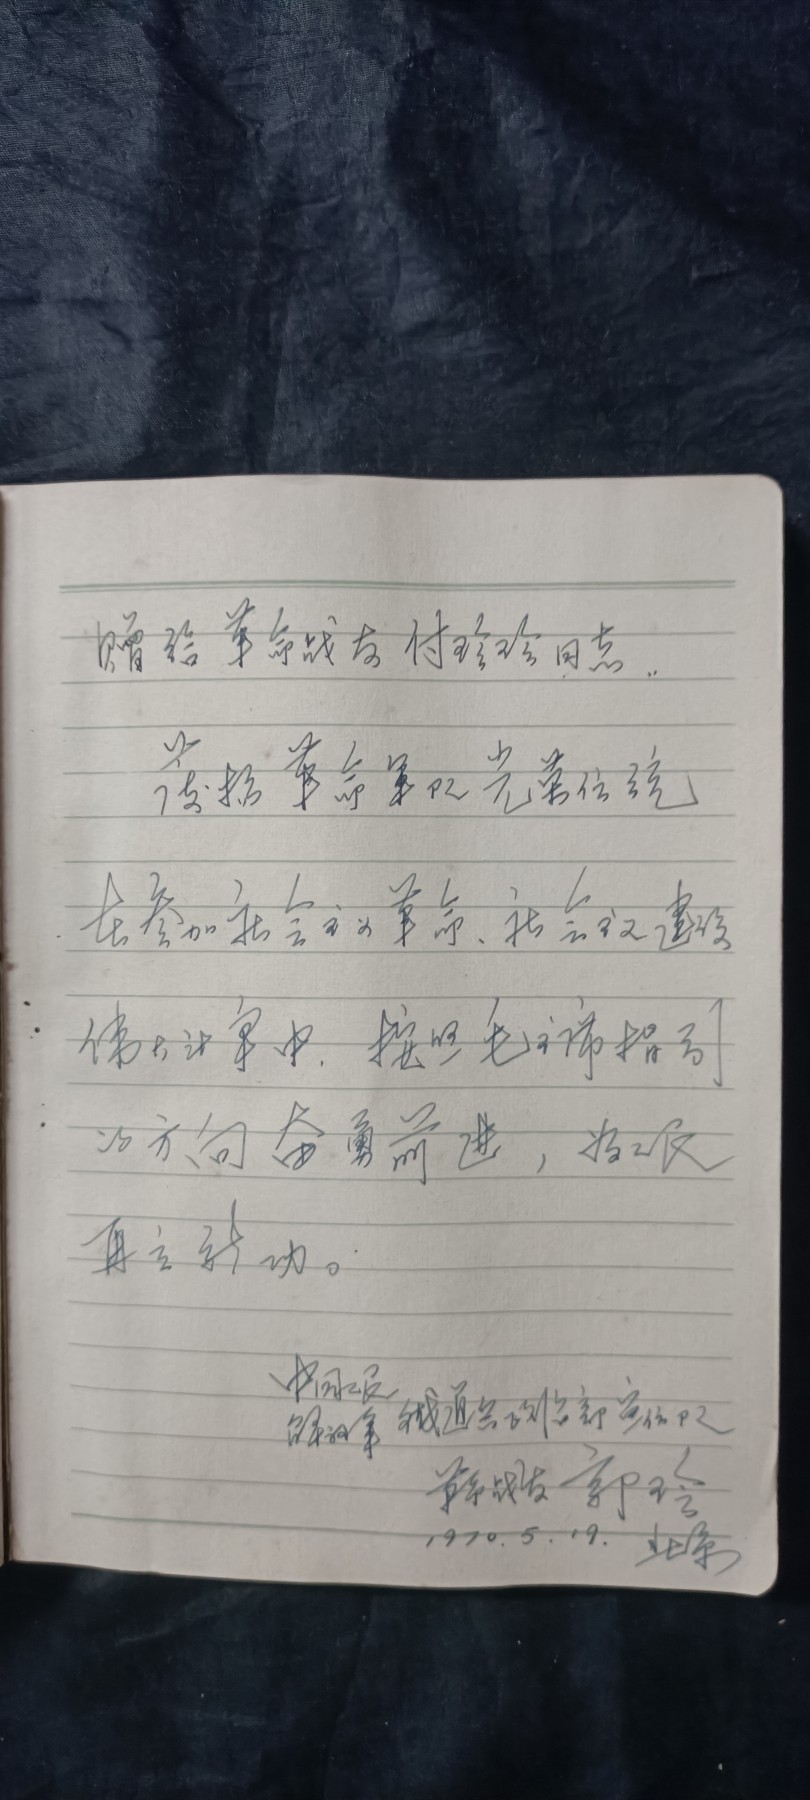 赠给革命战友付玲玲同志:
发扬革命军队光荣传统
在参加社会主义革命、社会主义建设
伟大斗争中,按照毛主席指引
的方向奋勇前进,为人民
再立新功。
中国人民
解放军 铁道兵政治部宣传队
革命战友 郭玲
1970.5.19. 北京